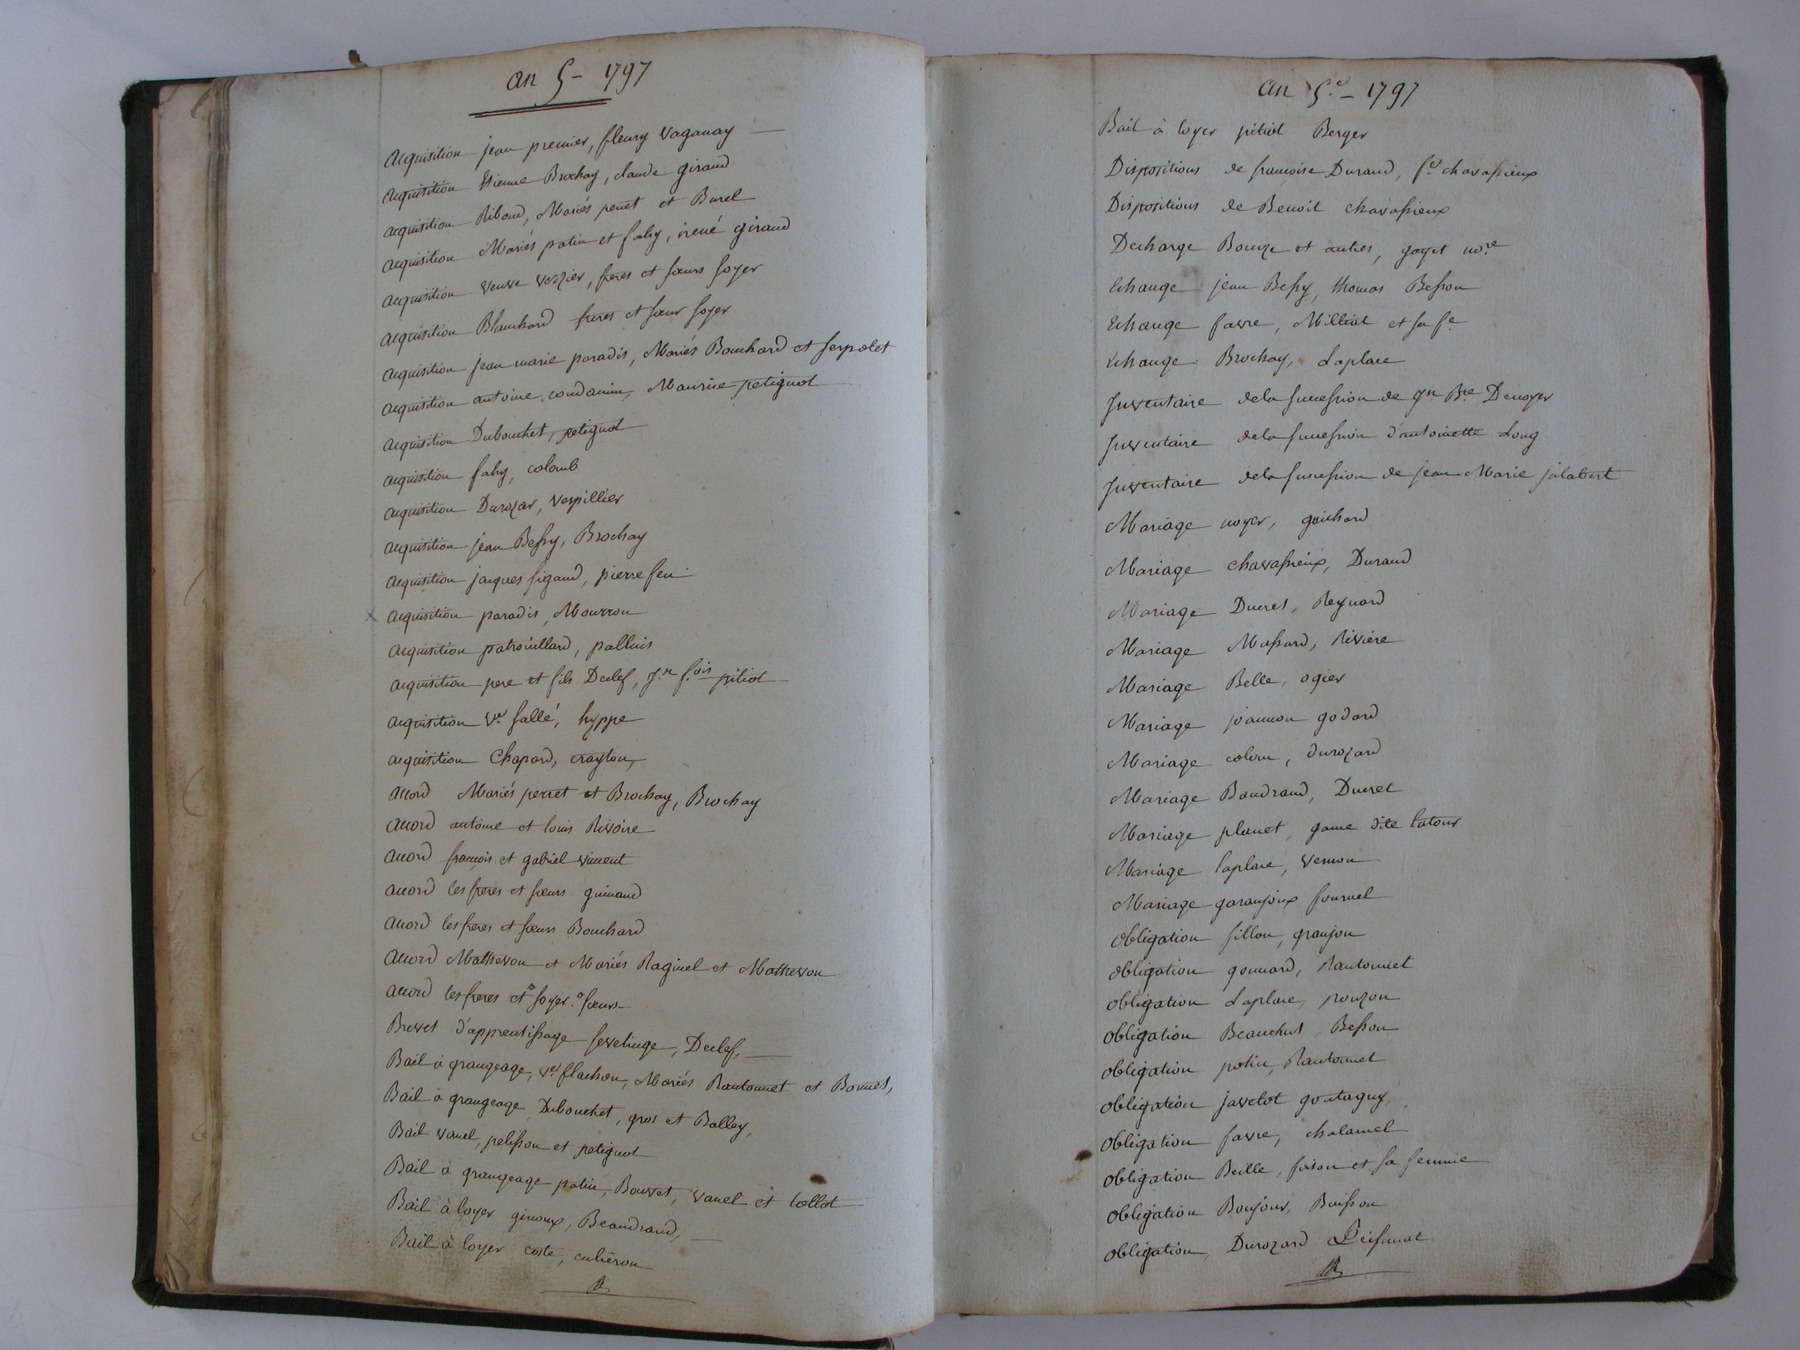 an 5 - 1797
acquisition jean premier, fleury vaganay
acquisition Etienne Brochay, claude giraud
acquisition Ribaud, Mariés peuet et Burel
acquisition Mariés patin et fahy, irené giraud
acquisition veuve verzier, freres et sœurs soyer
acquisition Blanchard freres et sœur soyer
acquisition jean marie paradis, Mariés Bouchard et serpolet
acquisition antoine condamin, Maurice petignot
acquisition Dubouchet, petignot
acquisition fahy, colomb
acquisition Durozar, verpillier
acquisition jean Bessy, Brochay
acquisition jacques sigaud, pierre feu
x acquisition paradis, Mourron
acquisition patrouillard, palluis
acquisition pere et fils Declef, jn f.ois pitiot
acquisition ve fallé, hyppe
acquisition Chapard, crayton
accord Mariés perret et Brochay, Brochay
accord antoine et louis Rivoire
accord françois et gabriel vincent
accord les freres et sœurs guinand
accord les freres et sœurs Bouchard
accord Mathevon et Mariés Raginel et Mathevon
accord les freres et soyer sœurs
Brevet d'apprentissage sevelinge, Declef,
Bail à grangeage, ve flachon, Mariés Rantonnet et Bonnet,
Bail à grangeage Dubouchet, gros et Balley,
Bail vanel, pelisson et petignot
Bail à grangeage patin, Bouvet, vanel et collot
Bail à loyer giroux, Beaudrand,
Bail à loyer coste, culieron
an 5e - 1797
Bail à loyer pitiot Berger
Dispositions de francoise Durand, fe chavassieux
Dispositions de Benoit chavassieux
Decharge Bouze et autres, gayet nore
Echange jean Bessy, thomas Besson
Echange favre, Milliat et sa fe
Echange Brochay, Laplace
Inventaire de la succession de jn Bte Denoyer
Inventaire de la succession d'antoinette Long
Inventaire de la succession de jean Marie jalabert
Mariage noyer, guichard
Mariage chavassieux, Durand
Mariage Ducret, Reynard
Mariage Massard, Riviere
Mariage Belle, ogier
Mariage joannon godard
Mariage colom, durozard
Mariage Baudrand, Ducret
Mariage planet, game dite latour
Mariage laplace, vernon
Mariage garanjoux fournel
obligation fillon, granjon
obligation gonnard, Rantonnet
obligation Laplace, pouzon
obligation Beauchut Besson
obligation potin, Rantonnet
obligation javelot gontaguy
obligation favre, chalamel
obligation Beille, foison et sa femme
obligation Boujour, Buisson
obligation, Durozard